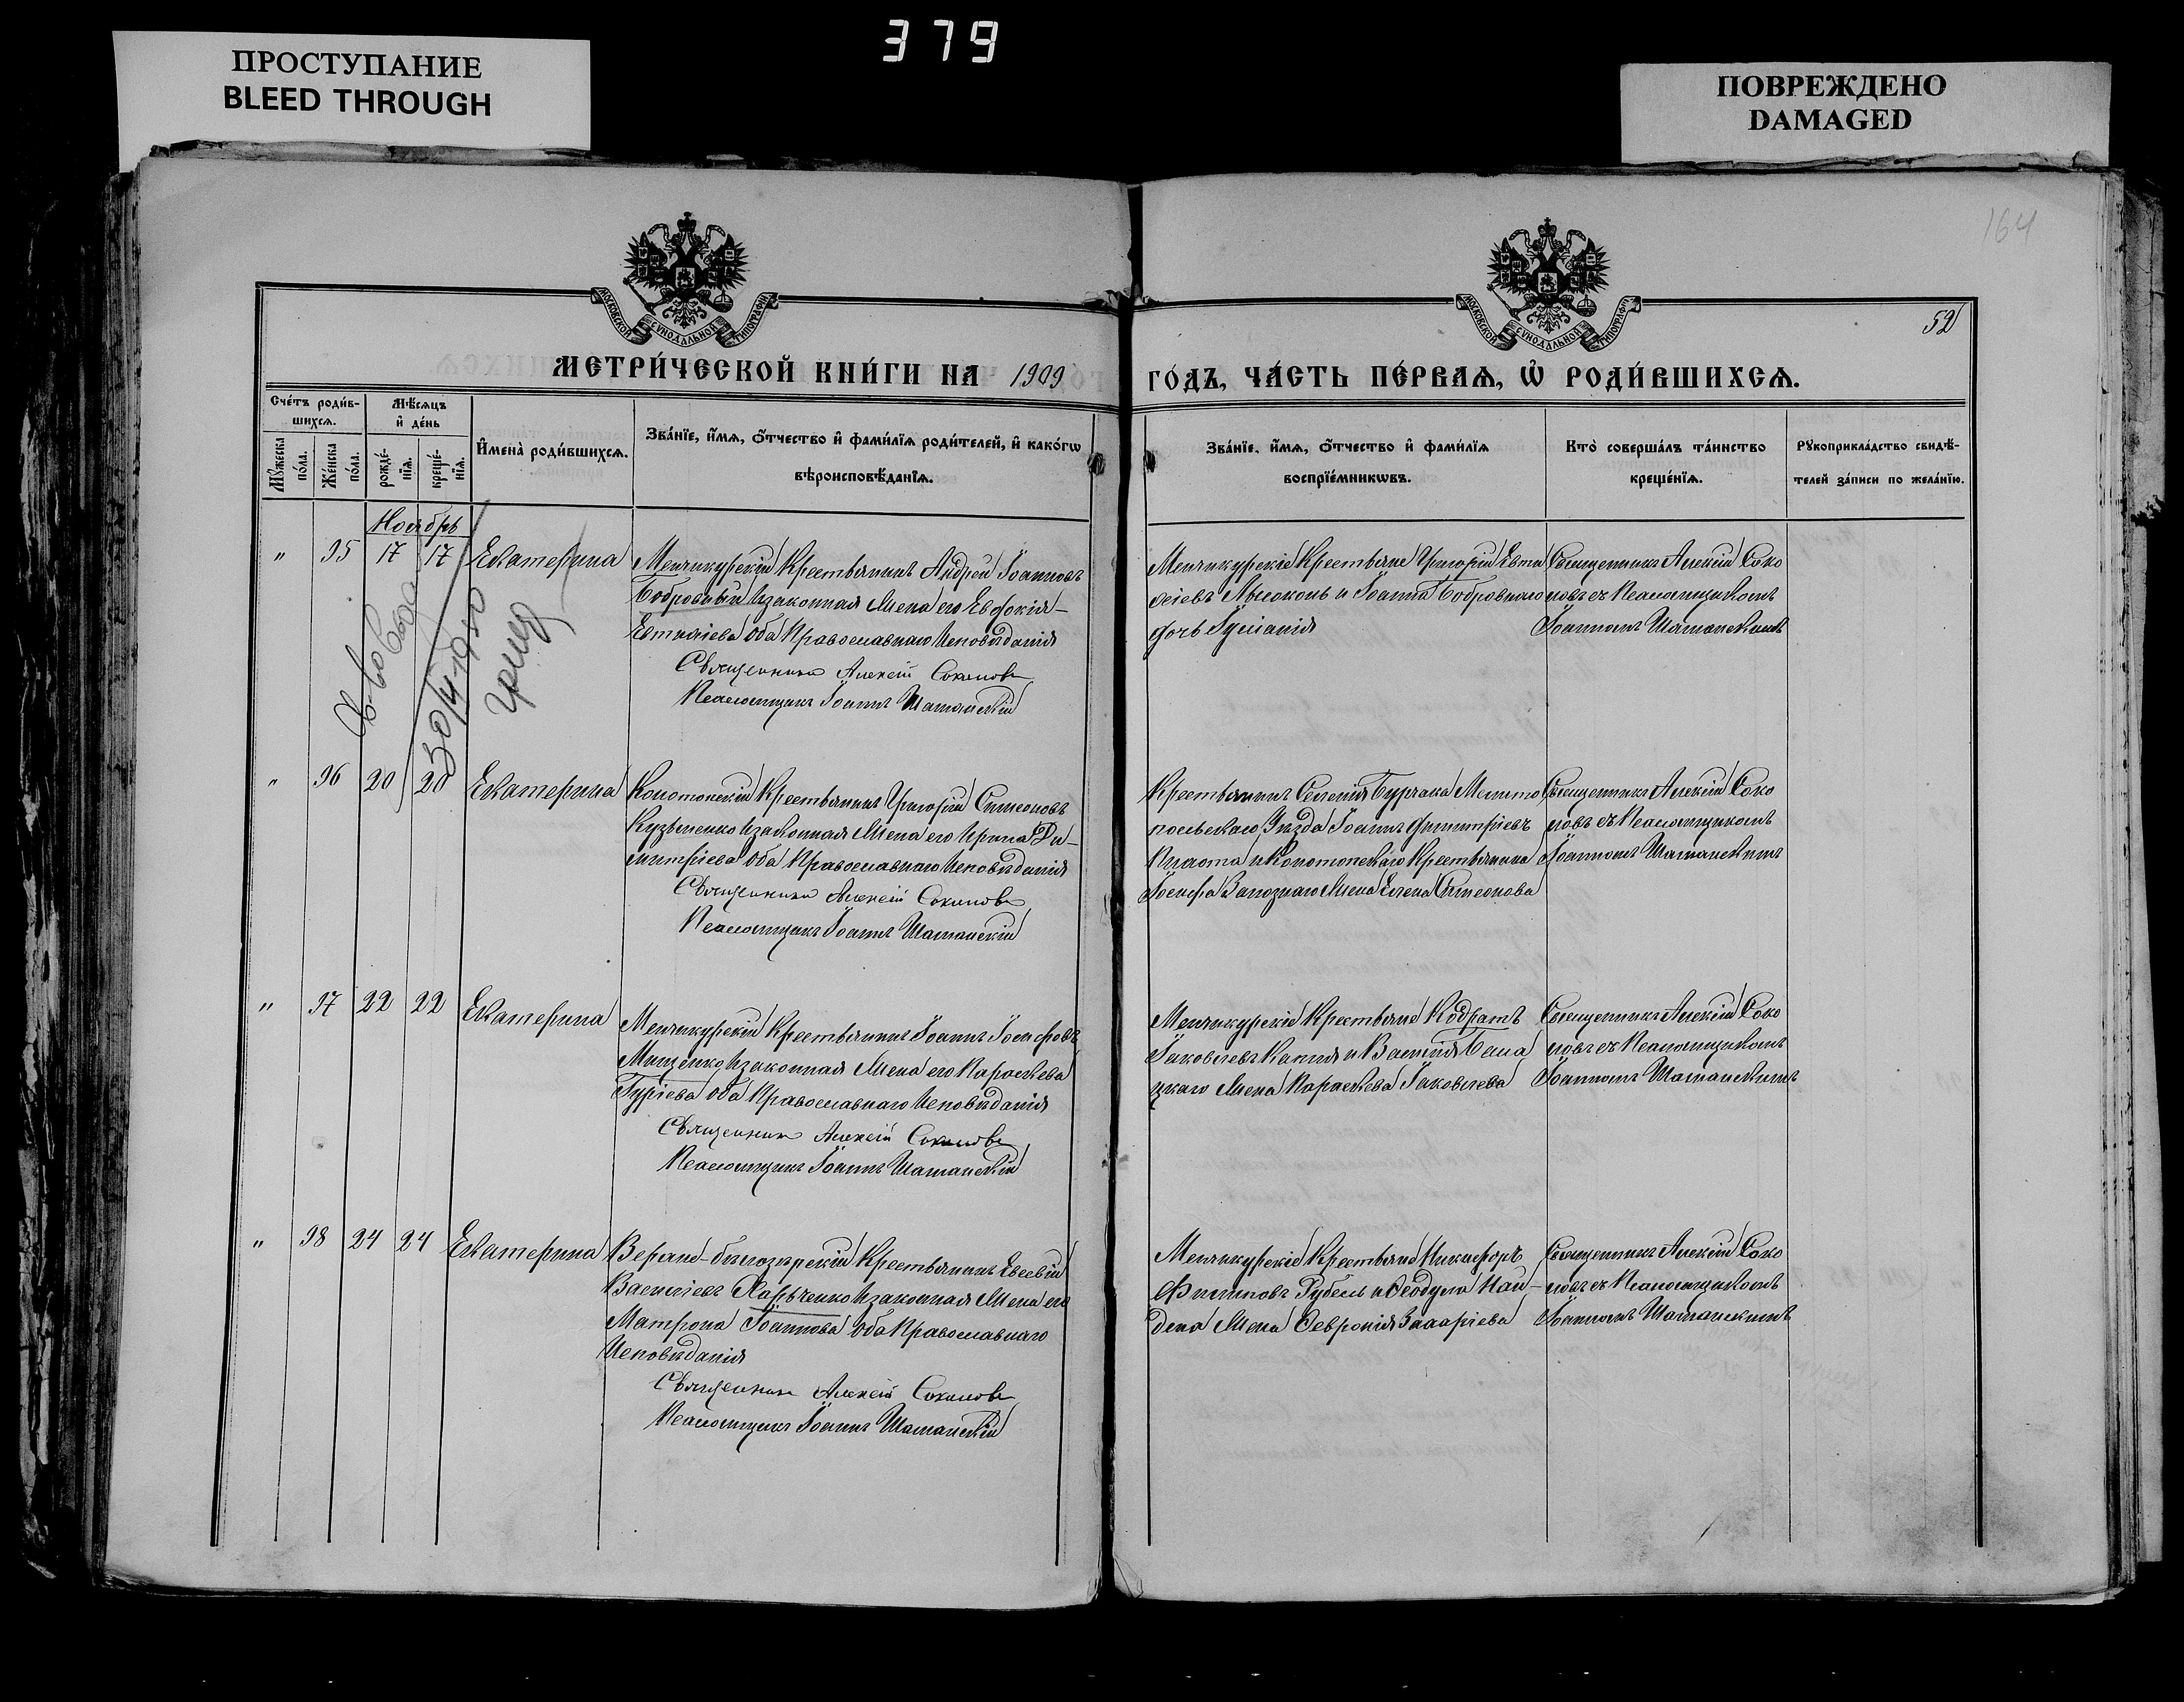 379
ПРОСТУПАНИЕ
BLEED THROUGH
ПОВРЕЖДЕНО
DAMAGED
164
52
МОСКОВСКОЙ СѴНОДАЛЬНОЙ ТИПОГРАФІИ
МОСКОВСКОЙ СѴНОДАЛЬНОЙ ТИПОГРАФІИ
МЕТРИ́ЧЕСКОЙ КНИ́ГИ НА 1909
ГО́ДЪ, ЧА́СТЬ ПЕ́РВАѦ, Ѡ РОДИ́ВШИХСѦ.
Сче́тъ роди́в-
шихсѧ.
Мꙋ́жеска по́ла.
Же́нска по́ла.
Мѣ́сѧцъ
и҆ де́нь
рожде́-
нїѧ.
креще́-
нїѧ.
И҆мена̀ роди́вшихсѧ.
Зва́нїе, и҆́мѧ, ѻ҆́тчество и҆ фами́лїѧ роди́телей, и҆ како́гѡ
вѣроисповѣ́данїѧ.
Зва́нїе, и҆́мѧ, ѻ҆́тчество и҆ фами́лїѧ
воспрїе́мникѡвъ.
Кто̀ соверша́лъ та́инство
креще́нїѧ.
Рꙋкоприкла́дство свидѣ́-
телей за́писи по жела́нїю.
Ноябрь
" 95 17 17 Екатерина
Менчикурскій Крестьянинъ Андрей Іоанновъ
Бобровный и законная жена его Евдокія
Евтихіева оба Православнаго Исповѣданія
Священникъ Алексій Соколовъ
Псаломщикъ Іоаннъ Шаманскій
Менчикурскіе Крестьяне Григорій Евти
хіевъ и Іоанна Бобровнаго
дочь Іуліанія
Священникъ Алексій Соко
ловъ съ Псаломщикомъ
Іоанномъ Шаманскимъ
" 96 20 20 Екатерина
Конотопскій Крестьянинъ Григорій Симеоновъ
Кузьменко и законная жена его Ирина Ди-
митріева оба Православнаго Исповѣданія
Священникъ Алексій Соколовъ
Псаломщикъ Іоаннъ Шаманскій
Крестьянинъ Селенія Бурчака Мелито
польскаго Уѣзда Іоаннъ Димитріевъ
и Конотопскаго Крестьянина
Іосифа жена Елена Симеонова
Священникъ Алексій Соко
ловъ съ Псаломщикомъ
Іоанномъ Шаманскимъ
" 97 22 22 Екатерина
Менчикурскій Крестьянинъ Іоаннъ Іосифовъ
Мищенко и законная жена его Параскева
Гуріева оба Православнаго Исповѣданія
Священникъ Алексій Соколовъ
Псаломщикъ Іоаннъ Шаманскій
Менчикурскіе Крестьяне Кодратъ
Іаковлевъ и Василія
жена Параскева Іаковлева
Священникъ Алексій Соко
ловъ съ Псаломщикомъ
Іоанномъ Шаманскимъ
" 98 24 24 Екатерина
Верхне-бѣлозерскій Крестьянинъ Евсевій
Васильевъ Харьченко и законная жена его
Матрона Іоаннова оба Православнаго
Исповѣданія
Священникъ Алексій Соколовъ
Псаломщикъ Іоаннъ Шаманскій
Менчикурскіе Крестьяне Никифоръ
Филиповъ и Феодула Най-
дена жена Февронія Захаріева
Священникъ Алексій Соко
ловъ съ Псаломщикомъ
Іоанномъ Шаманскимъ